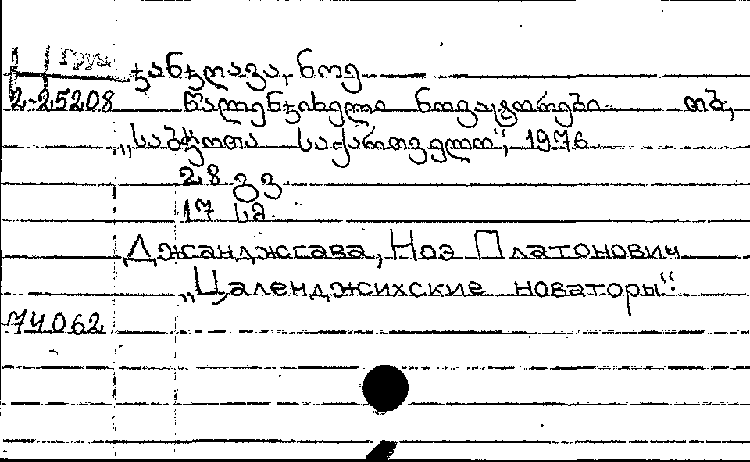 Груз
ჯანჯღავა, ნოე
2-25208 წალენჯიხელი ნოვატორები. თბ,
„საბჭოთა საქართველო“, 1976
28 გვ
17 სმ
Джанджгава, Ноэ Платонович
„Цаленджихские новаторы“.
74062